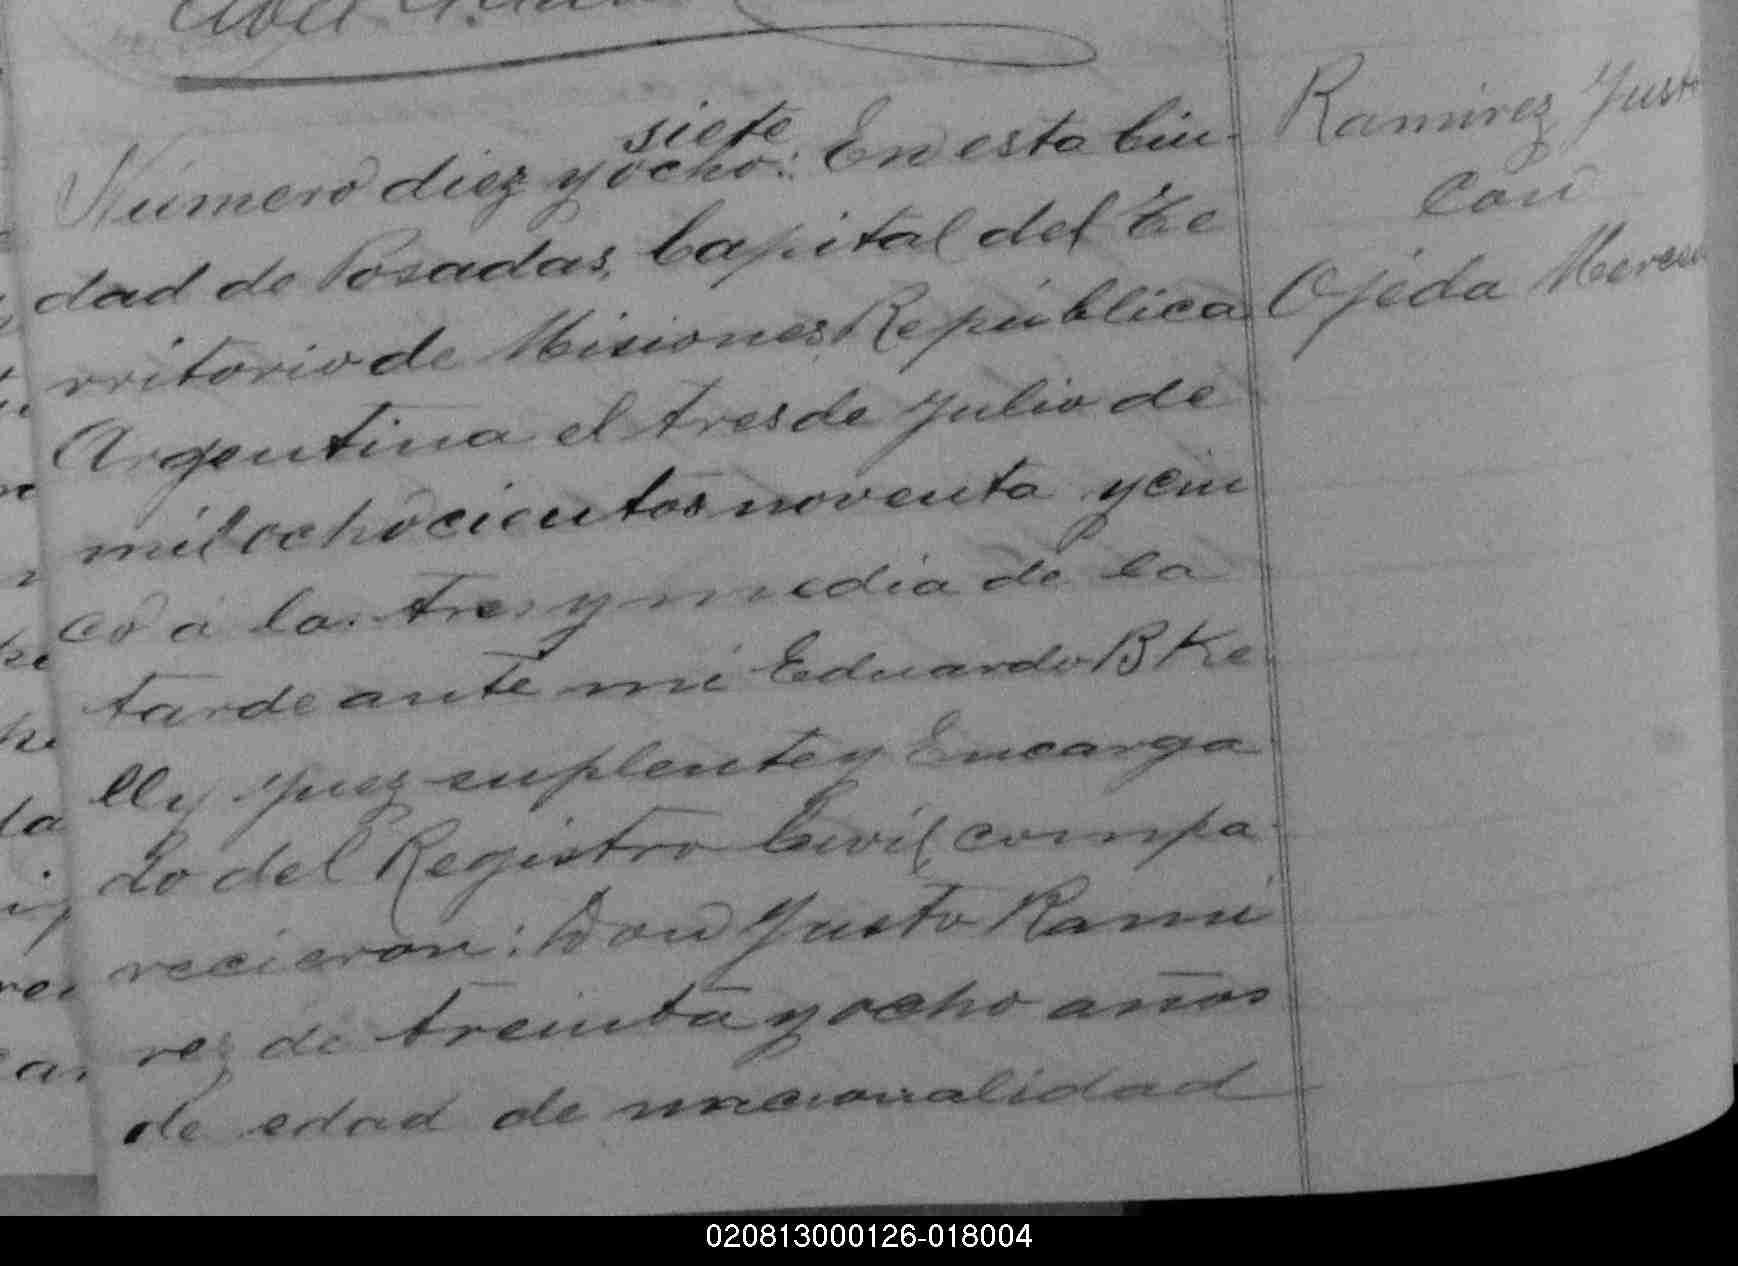 Número diez y ocho: En esta Ciu-
siete
dad de Posadas, Capital del Te
rritorio de Misiones República
Argentina el tres de Julio de
mil ochocientos noventa y cin
co á las tres y media de la
tarde ante mi Eduardo B Ke
lly Juez suplente y Encarga
do del Registro Civil, compa-
recieron: Don Justo Rami
rez de treinta y ocho años
de edad de nacionalidad
Ramirez Justo
Con
Ojeda
020813000126-018004